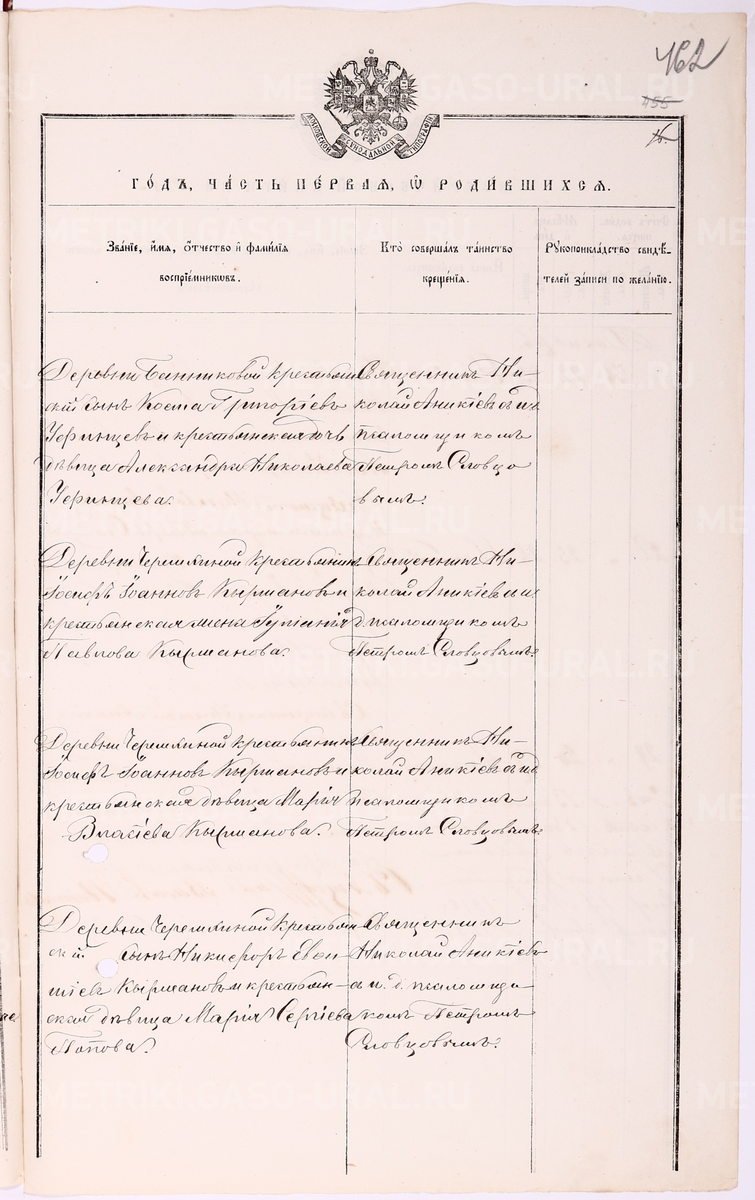 462
455
МОСКОВСКОЙ СѴНОДАЛЬНОЙ ТИПОГРАФІИ
ГОДЪ, ЧАСТЬ ПЕРВАЯ, Ѡ РОДИВШИХСЯ.
Званіе, имя, отчество и фамилія воспріемниковъ.
Кто совершалъ таинство крещенія.
Рукоприкладство свидѣтелей записи по желанію.
Деревни Банниковой крестьян
скій сынъ Косма Григоріевъ
Уфинцевъ и крестьянская дочь
дѣвица Александра Николаева
Уфинцева.
Священникъ Ни-
колай Аникіевъ съ и д
псаломщикомъ
Петромъ Словцо
вымъ.
Деревни Черемхиной крестьянинъ
Іосифъ Іоанновъ Кырмановъ и
крестьянская жена Іуліанія
Павлова Кырманова.
Священникъ Ни-
колай Аникіевъ и
д псаломщикомъ
Петромъ Словцовымъ.
Деревни Черемхиной крестьянинъ
Іосифъ Іоанновъ Кырмановъ и
крестьянская дѣвица Марія
Власіева Кырманова.
Священникъ Ни-
колай Аникіевъ съ и д
псаломщикомъ
Петромъ Словцовымъ.
Деревни Черемхиной крестьян-
скій сынъ Никифоръ Евси
гіевъ Кырмановъ и крестьян-
ская дѣвица Марія Сергіева
Попова.
Священникъ
Николай Аникіевъ
съ и. д. псаломщи
комъ Петромъ
Словцовымъ.
METRIKI.GASO-URAL.RU